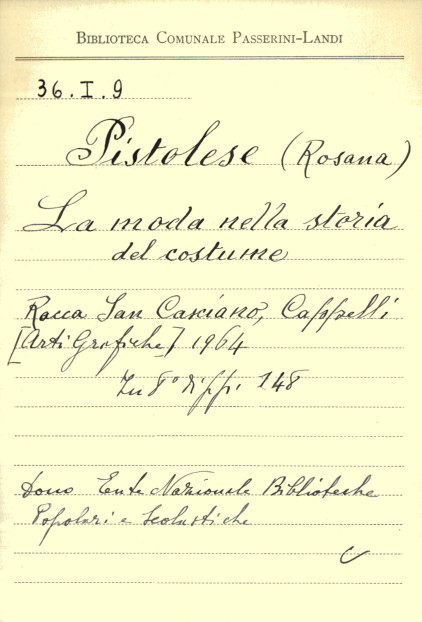 BIBLIOTECA COMUNALE PASSERINI-LANDI
36.I.9
Pistolese (Rosana)
La moda nella storia
del costume
Rocca San Casciano, Cappelli
[Arti Grafiche] 1964
In 8° di pp. 148
Dono Ente Nazionale Biblioteche
Popolari e Scolastiche
C